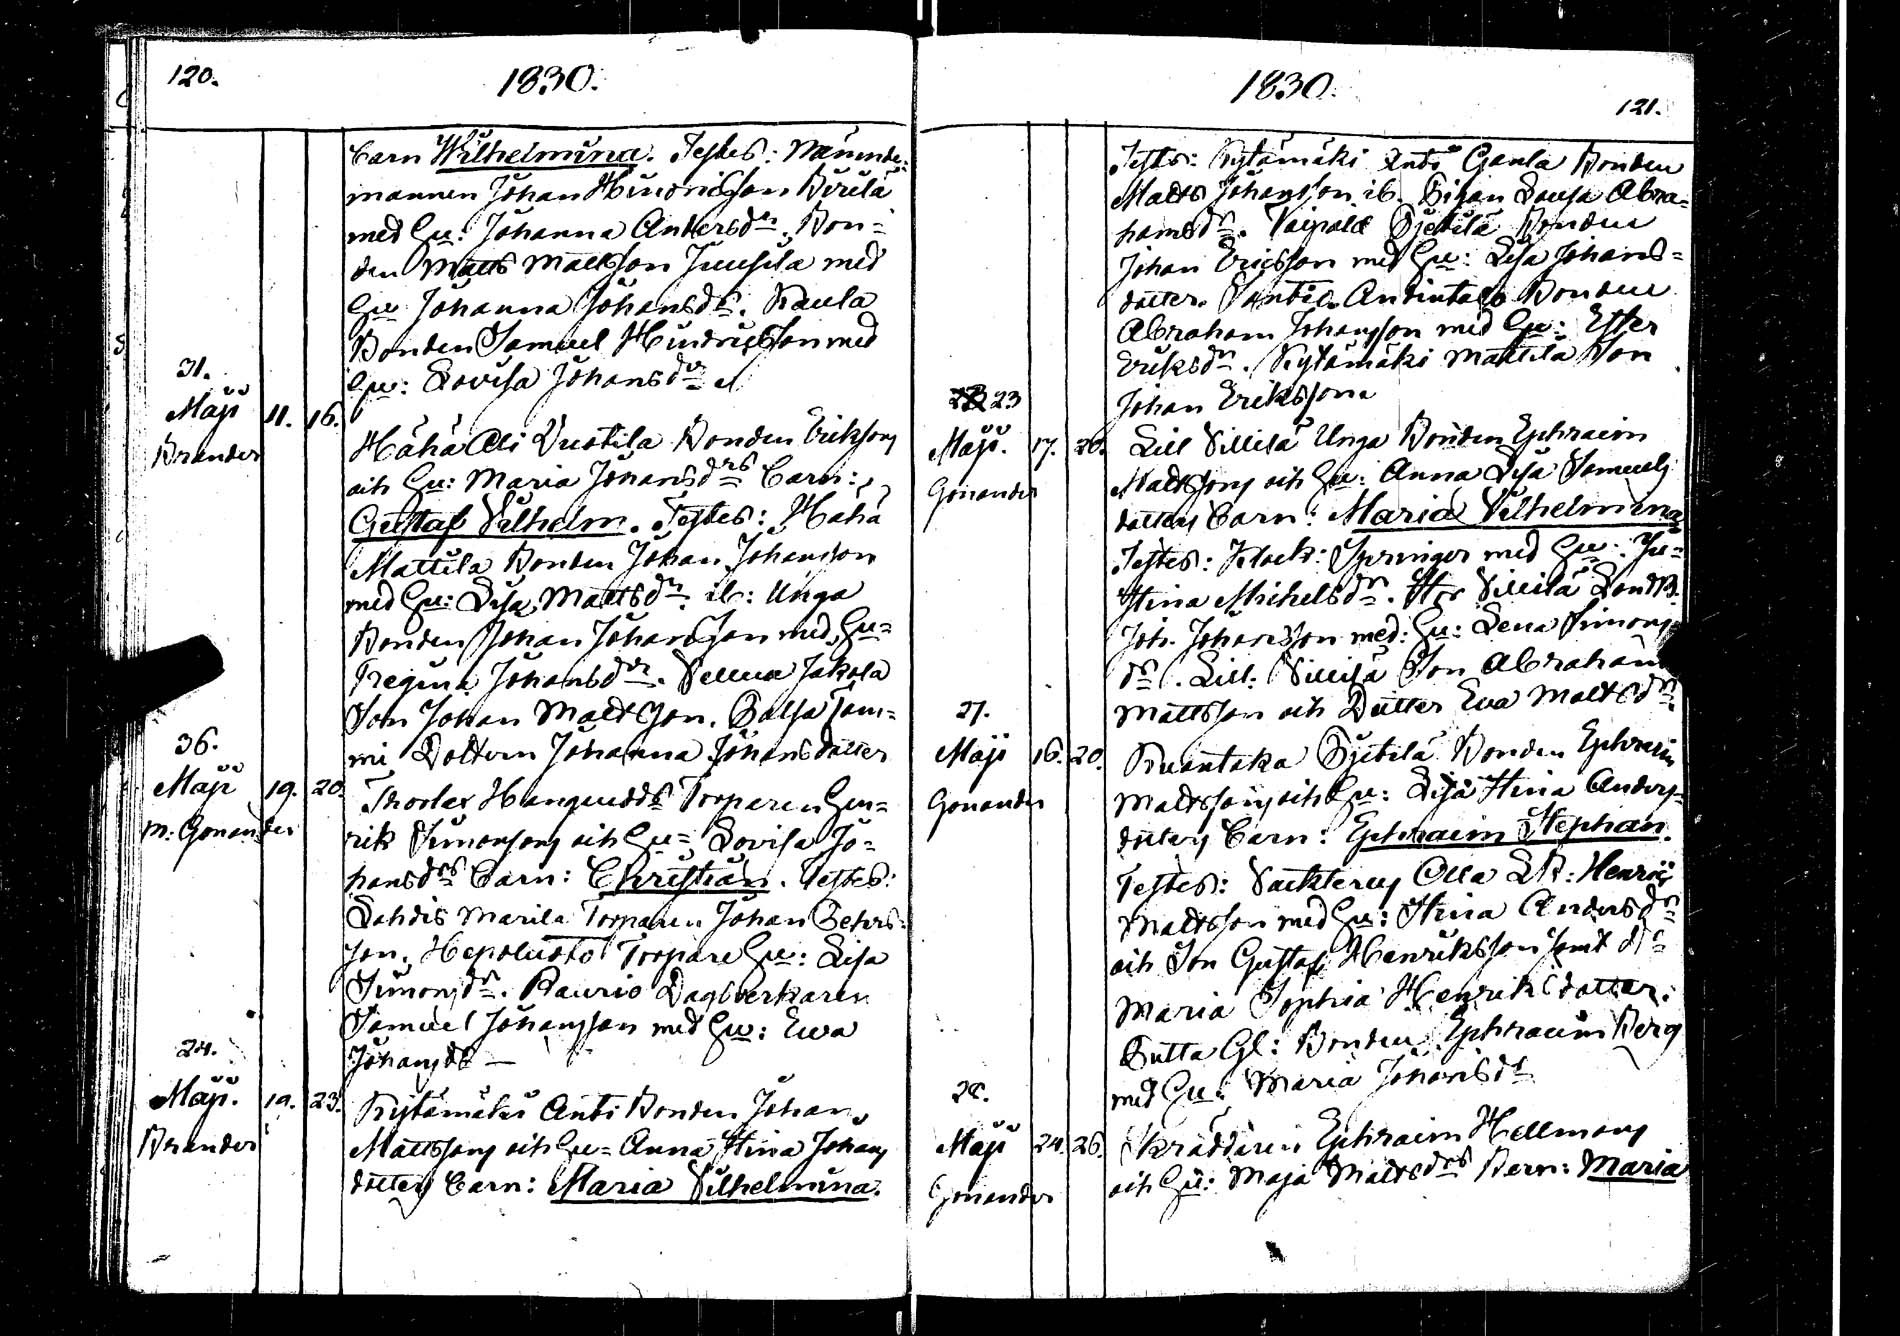 120.
1830.
Barn Wilhelmina. Testes: Nämnde-
mannen Johan Hindricsson
med Hu: Johanna Andersdr. Bon-
den Matts Mattsson Juusila med
Hu Johanna Johansdr. Kaula
Bonden Samuel Hindricsson med
Hu: Lovisa Johansdr
31.
Maji 11. 16.
Brander
Hähä Olli Vuotila Bonden Eriksons
och Hu: Maria Johansdrs Barn:
Gustaf Vilhelm. Testes: Hähä
Mattila Bonden Johan Johansson
med Hu: Lisa Mattsdr. ib: Unga
Bonden Johan Johansson med Hu=
Regina Johansdr. Jakola
Son Johan Mattsson. Tom=
mi Dottern Johanna Johansdotter
36.
Maji 19. 20.
M. Gonander
Torparen Hen=
rik Simonsons och Hu= Lovisa Jo=
hansdrs Barn: Christian. Testes:
Lahdis Marila Torparen Johan Peters-
son. Hepoluoto Torpare Hu: Lisa
Simonsdr. Kaurio Dagsverkaren
Samuel Johansson med Hu: Eva
Johansdr —
24.
Maji. 19. 23.
Brander
Kytämäki Anti Bonden Johan
Mattssons och Hu= Anna Stina Johans
dotters Barn: Maria Vilhelmina.
1830.
121.
Testes: Kytämäki Anti Gamla Bonden
Matts Johansson ib. Pigan Lovisa Abra=
hamsdr. Taipale Pjetilä Bonden
Johan Ericsson med Hu: Lisa Johans=
dotter. Bonden
Abraham Johansson med Hu: Ester
Eriksdr. Kytämäki Mattila Son
Johan Eriksson
23
Maji. 17. 20.
Gonander
Lill Villilä Unga Bonden Ephraim
Mattssons och Hu: Anna Lisa Samuels
dotters Barn: Maria Vilhelmina
Testes: Klock: Springer med Hu:
Stina Michelsdr. Stor Villilä
Joh. Johansson med: Hu: Lena Simons=
dr. Lill: Villilä Son Abraham
Mattsson och Dotter Eva Mattsdr.
27.
Maji 16. 20.
Gonander
Ruantaka Pjetilä Bonden Ephraim
Mattssons och Hu: Lisa Stina Anders-
dotters Barn: Ephraim Stephan.
Testes: Olla Henric
Mattsson med Hu: Stina Andersdr
och Son Gustaf Henriksson samt dr
Maria Sophia Henriksdotter.
Gl: Bonden Ephraim Berg
med Hu: Maria Johansdr
28.
Maji 24. 26.
Gonander
Skräddaren Ephraim Hellmans
och Hu: Maja Mattsdrs Barn: Maria